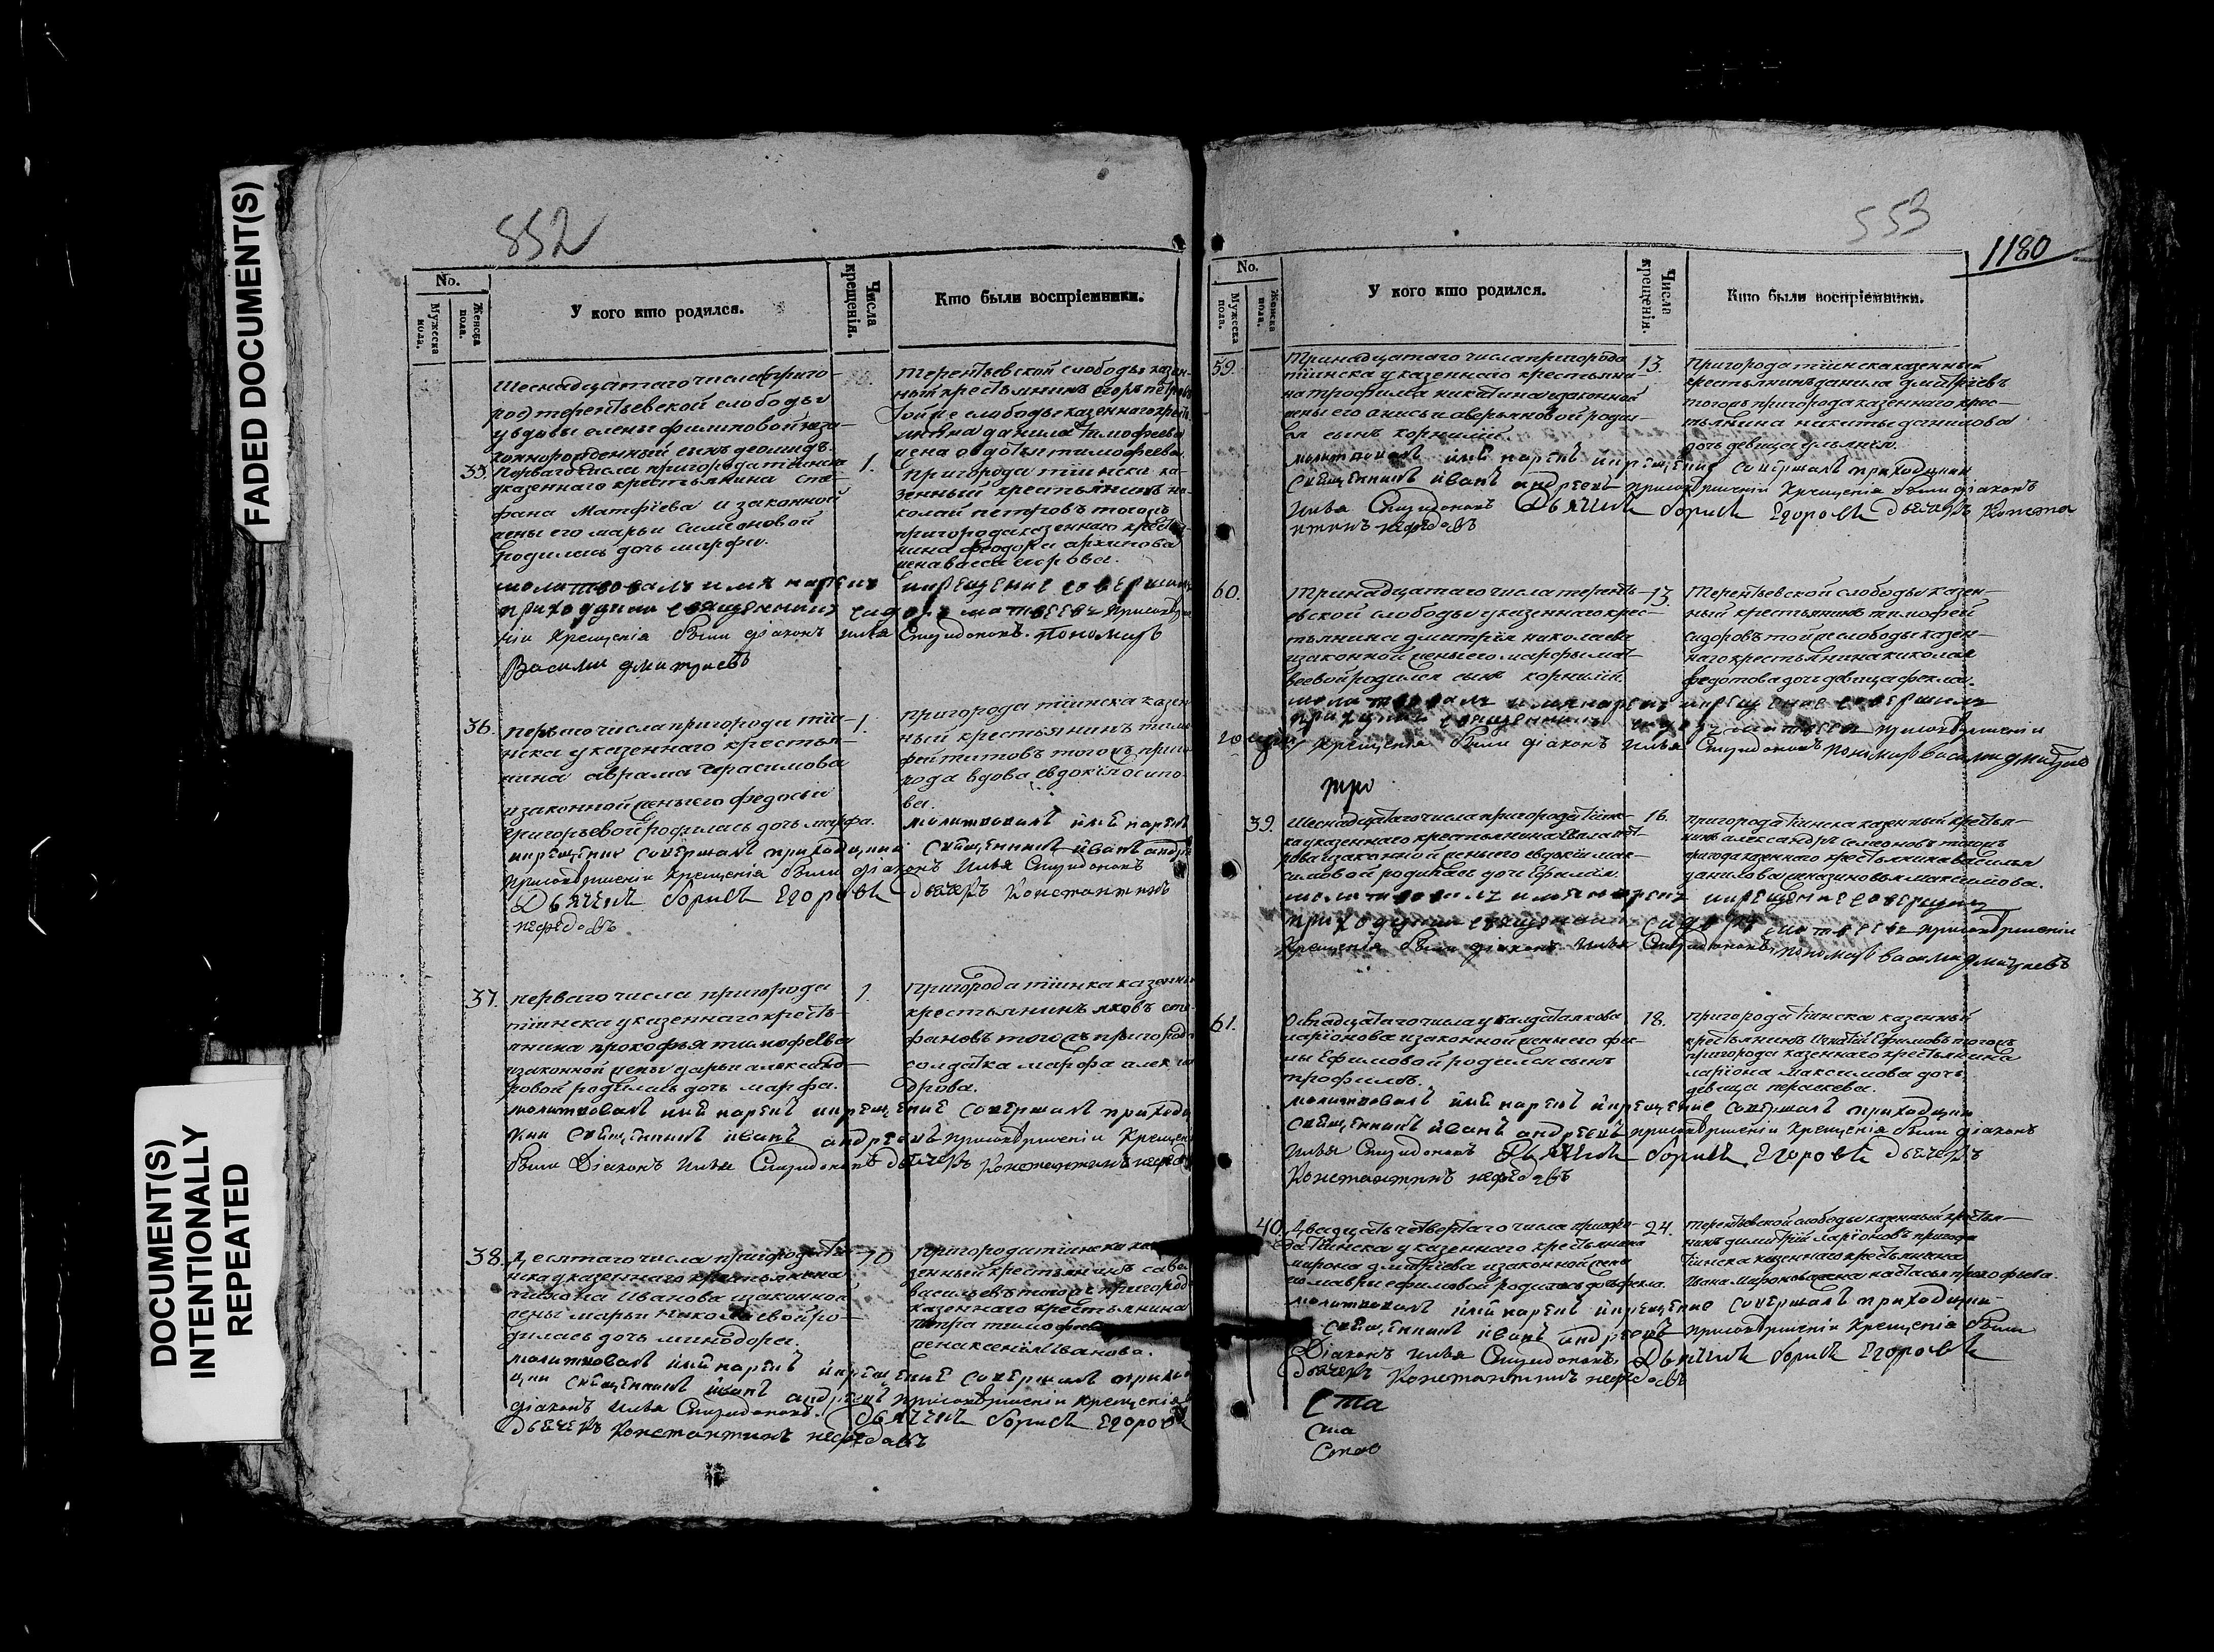 FADED DOCUMENT(S)
DOCUMENT(S)
INTENTIONALLY
REPEATED
552
No.
Мужеска пола.
Женска пола.
У кого кто родился.
Числа крещенія.
Кто были воспріемники.
Шеснадцатаго числа приго-
род терентьевской слободы
у вдовы елены филиповой неза-
коннорожденный сынъ
Терентьевской слободы казен-
ной крестьянинъ егоръ петровъ
той же слободы казеннаго
данила тимофеева
жена тимофеева.
35. Перваго числа пригорода тіинска
у казеннаго крестьянина сте-
фана Матфіева и законной
жены его марьи симеоновой
родилась дочь марфа.
1.
Пригорода тіинска ка-
зенный крестьянинъ ни-
колай петровъ тогожъ
пригорода казеннаго крестья-
нина феодора архипова
жена васса егорова.
молитвовалъ имя нарекъ и крещение совершалъ
приходцкии священникъ сидоръ матвеевъ при совѣрше-
ніи Крещенія были діаконъ илья Спиридоновъ. пономарь
Василии дмитриевъ
36. перваго числа пригорода тіи-
нска у казеннаго крестья-
нина аврама герасимова
и законной жены его федосьи
григорьевой родилась дочь марфа.
1.
пригорода тіинска казен
ный крестьянинъ тимо
фей титовъ тогожъ приго
рода вдова евдокія осипо
ва.
молитвовалъ имя нарекъ
и крещение совершалъ приходцкий священникъ иванъ андре
при совѣршеніи Крещенія были діаконъ Илья Спиридоновъ
Дьячикъ борисъ Егоровъ дьячекъ Константинъ
нефедовъ
37. перваго числа пригорода
тіинска у казеннаго кресть-
янина прокофья тимофеева
и законной жены дарьи александ-
ровой родилась дочь марфа.
1.
Пригорода тіинка казенный
крестьянинъ яковъ сте
фановъ тогожъ пригорода
солдатка марфа алексан
дрова.
молитвовалъ имя нарекъ и крещение совершалъ приходц
кии священникъ иванъ андреевъ при совѣршеніи Крещен
были Діаконъ Илья Спиридоновъ дьячекъ Константинъ нефедов
38. Десятаго числа пригорода тіи-
нска у казеннаго крестьянина
Иванова и законной
жены марьи николаевой ро-
дилась дочь минодора.
10
Пригорода тіинска ка-
зенный крестьянинъ
васильевъ тогожъ пригорода
казеннаго крестьянина
петра тимофеева
жена ксенія Иванова.
молитвовалъ имя нарекъ и крещение совершалъ приход
цкии священникъ иванъ андреевъ при совѣршении крещения
діаконъ Илья Спиридоновъ. Дьячикъ борисъ Егоровъ
Дьячекъ Константинъ нефедовъ
553
1180
No.
Мужеска пола.
Женска пола.
У кого кто родился.
Числа крещенія.
Кто были воспріемники.
59. Тринадцатаго числа пригорода
тіинска у казеннаго крестьяни-
на трофима никитина и законной
жены его анисьи аверьяновой родил-
ся сынъ корнилій
13.
Пригорода тіинска казенный
крестьянинъ данила дмитріевъ
тогожъ пригорода казеннаго крес-
тьянина никиты данилова
дочь девица ульянія.
молитвовалъ имя нарекъ и крещение совершалъ приходцкии
священникъ иванъ андреевъ при совѣршеніи Крещенія были діаконъ
Илья Спиридоновъ Дьячикъ борисъ Егоровъ дьячекъ Конста
нтинъ нефедовъ
60. Тринадцатаго числа теренть-
евской слободы у казеннаго крес-
тьянина дмитрія николаева
и законной жены его марфы мат-
веевой родился сынъ корнилій
13.
Терентьевской слободы казен-
ный крестьянинъ тимофей
сидоровъ той же слободы казен-
наго крестьянина николая
федотова дочь девица фекла.
молитвовалъ имя нарекъ и крещение совершалъ
приходцкии священникъ сидоръ матвеевъ при совѣршении
Крещенія были діаконъ Илья Спиридоновъ пономарь василии дмитрие
тро
39. Шеснадцатаго числа пригорода тіинс-
ка у казеннаго крестьянина
и законной жены его евдокіи мак-
симовой родилась дочь Ефимія.
16.
пригорода тіинска казенный крестья-
нинъ александръ симеоновъ тогожъ
пригорода казеннаго крестьянина василья
данилова жена максимова.
молитвовалъ имя нарекъ и крещение совершалъ
приходцкии священникъ сидоръ матвеевъ при совѣршении
Крещения были діаконъ Илья Спиридоновъ, пономарь василии дмитриевъ
61. Осмнадцатаго числа у салдата якова
ларіонова и законной жены его
Ефимовой родился сынъ
трофимъ.
18.
пригорода тіинска казенный
крестьянинъ Игнатій Ефимовъ тогожъ
пригорода казеннаго крестьянина
ларіона максимова дочь
девица параскева.
молитвовалъ имя нарекъ и крещение совершалъ приходцкии
священникъ иванъ андреевъ при совѣршеніи Крещения были діаконъ
Илья Спиридоновъ Дьячикъ борисъ Егоровъ дьячекъ
Константинъ нефедовъ
40. Двадцать четвертаго числа пригоро-
да тіинска у казеннаго крестьянина
мирона дмитріева и законной жены
его мавры ефимовой родилась дочь фекла.
24.
терентьевской слободы казенный крестья-
нинъ димитрій Ларіоновъ пригорода
тіинска казеннаго крестьянина
Ивана Миронова жена настасья прокофьева.
молитвовалъ имя нарекъ и крещение совершалъ приходцкии
священникъ иванъ андреевъ при совѣршеніи Крещения были
Діаконъ Илья Спиридоновъ, Дьячикъ борисъ Егоровъ
Дьячекъ Константинъ нефедовъ
Ста
Ста
Стао